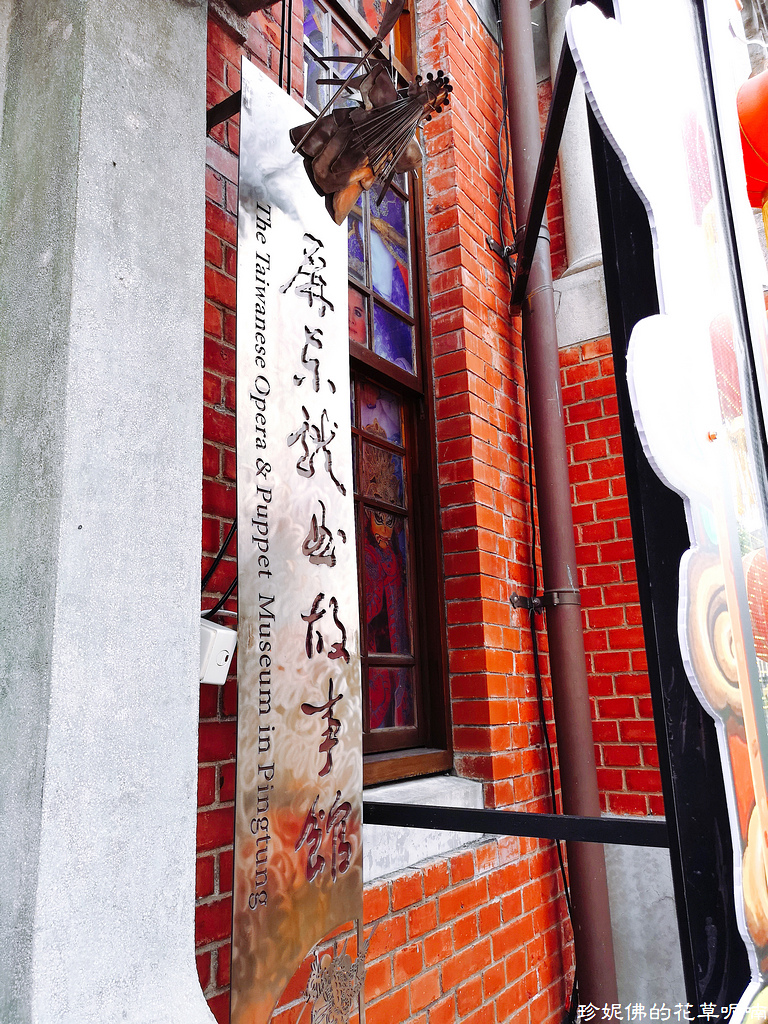 屏東戲曲故事館
The Taiwanese Opera & Puppet Museum in Pingtung
珍妮佛的花草呢喃